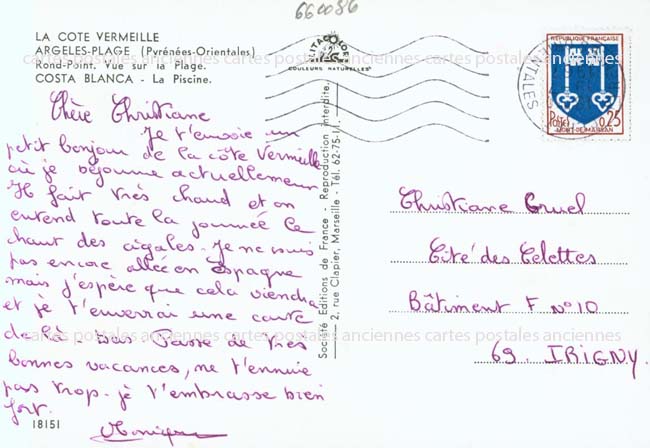 664086
LA COTE VERMEILLE
ARGELES-PLAGE (Pyrénées-Orientales)
Rond-Point. Vue sur la Plage.
COSTA BLANCA - La Piscine.
COULEURS NATURELLES
Chère Christiane
Je t'envoie un
petit bonjour de la côte Vermeille
où je séjourne actuellement
Il fait très chaud et on
entend toute la journée le
chant des cigales. Je ne suis
pas encore allée en Espagne
mais j'espère que cela viendra
et je t'enverrai une carte
de là-bas Passe de très
bonnes vacances, ne t'ennuie
pas trop. je t'embrasse bien
fort.
Monique
18151
Société Editions de France - Reproduction interdite.
2, rue Clapier, Marseille - Tél. 62-75-11.
REPUBLIQUE FRANÇAISE
Postes 0,25
MONT-DE-MARSAN
ORIENTALES
Christiane Cruel
Cité des Celettes
Bâtiment F N°10
69. IRIGNY.
cartes postales anciennes cartes postales anciennes cartes postales anciennes